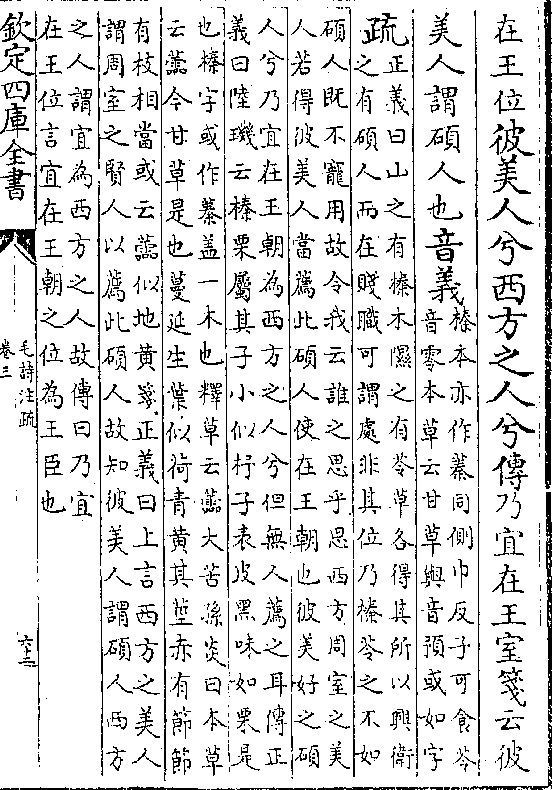 在王位彼美人兮西方之人兮傳乃宜在王室箋云彼
美人謂碩人也音義榛本亦作蓁同側巾反子可食苓
音零本草云甘草與音預或如字
疏正義曰山之有榛木隰之有苓草各得其所以興衛
之有碩人而在賤職可謂處非其位乃榛苓之不如
碩人既不寵用故令我云誰之思乎思西方周室之美
人若得彼美人當薦此碩人使在王朝也彼美好之碩
人兮乃宜在王朝為西方之人兮但無人薦之耳傳正
義曰陸璣云榛栗屬其子小似杼子表皮黑味如栗是
也榛字或作蓁盖一木也釋草云蘦大苦孫炎曰本草
云蘦今甘草是也蔓延生葉似荷青黄其莖赤有節節
有枝相當或云蘦似地黄箋正義曰上言西方之美人
謂周室之賢人以薦此碩人故知彼美人謂碩人西方
之人謂宜為西方之人故傳曰乃宜
在王位言宜在王朝之位為王臣也
欽定四庫全書
毛詩注疏
卷三